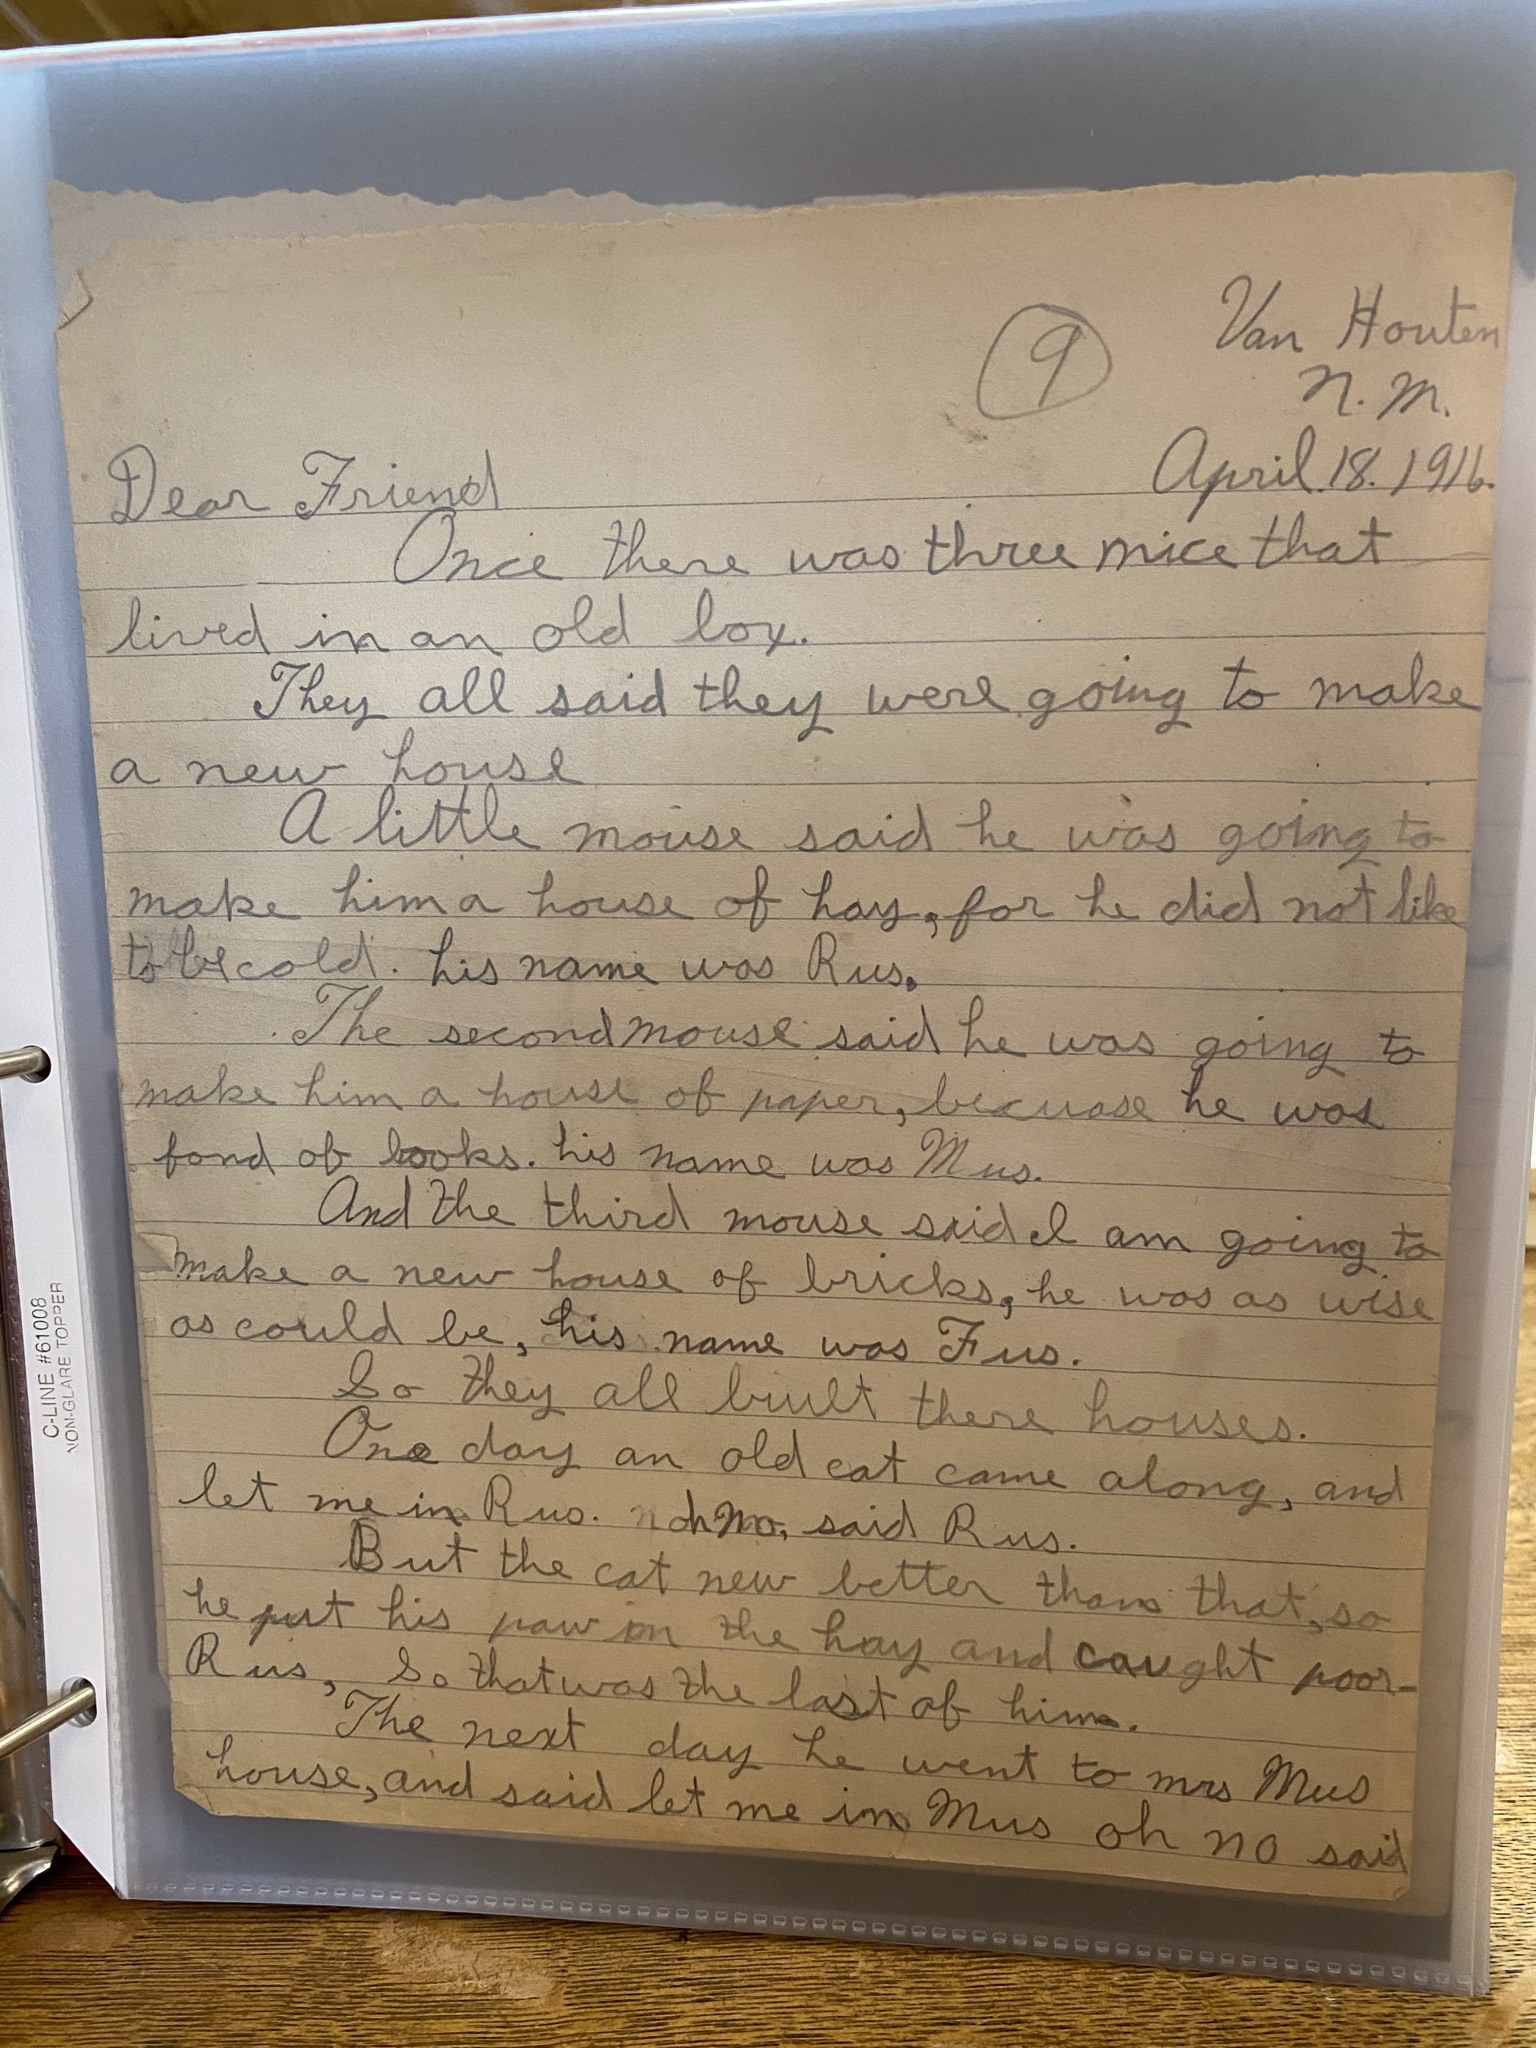 9
Van Houten
N. M.
April. 18. 1916.
Dear Friend
Once there was three mice that
lived in an old box.
They all said they were going to make
a new house
A little mouse said he was going to
make him a house of hay, for he did not like
to be cold. his name was Rus.
The second mouse said he was going to
make him a house of paper, becuase he was
fond of books. his name was Mus.
And the third mouse said I am going to
make a new house of bricks, he was as wise
as could be, his name was Fus.
So they all built there houses.
One day an old cat came along, and
let me in Rus. oh no, said Rus.
But the cat new better than that, so
he put his paw in the hay and caught poor
Rus, So that was the last of him.
The next day he went to mrs Mus
house, and said let me in Mus oh no said
C-LINE #61008
NON-GLARE TOPPER